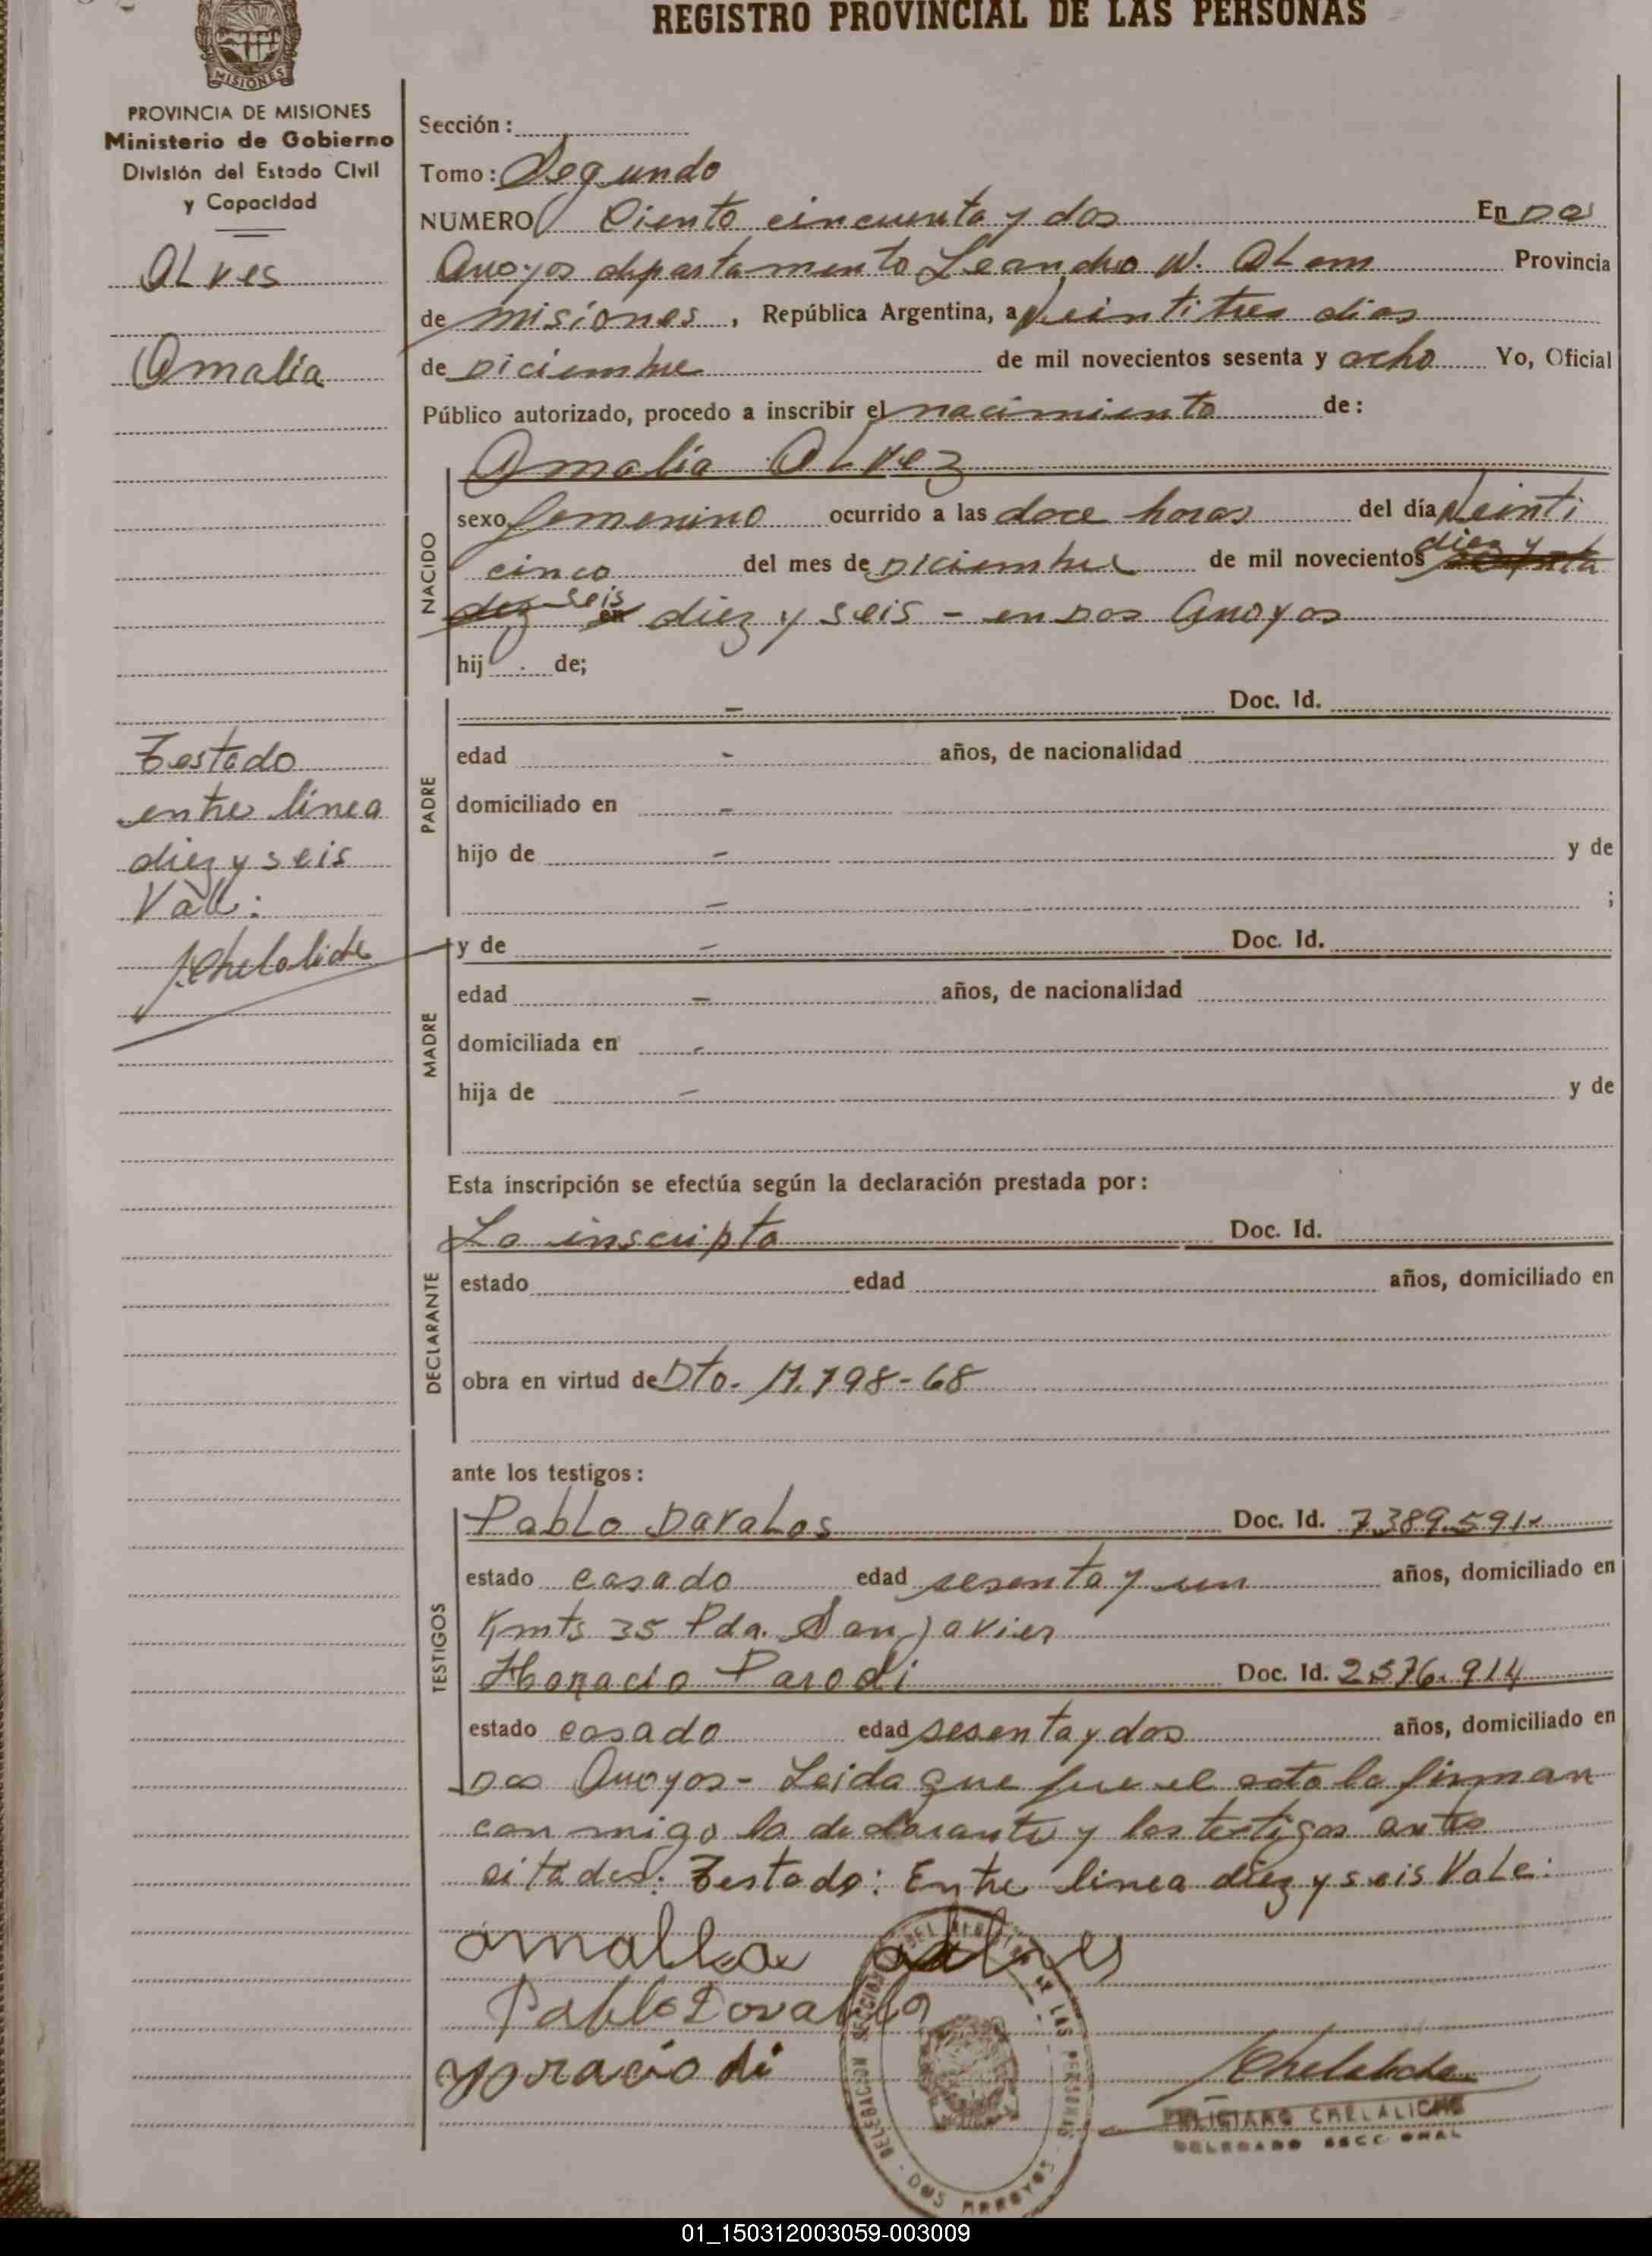 REGISTRO PROVINCIAL DE LAS PERSONAS
MISIONES
PROVINCIA DE MISIONES
Ministerio de Gobierno
División del Estado Civil
y Capacidad
ALves
Amalia
Testado
entre línea
diez y seis
Vale:
Sección:
Tomo: Segundo
NUMERO Ciento cincuenta y dos En Dos
Arroyos departamento Leandro N. ALem Provincia
de misiones, República Argentina, a Veintitres dias
de Diciembre de mil novecientos sesenta y ocho Yo, Oficial
Público autorizado, procedo a inscribir el nacimiento de:
Amalia ALvez
NACIDO
sexo femenino ocurrido a las doce horas del día Veinti
cinco del mes de Diciembre de mil novecientos diez y
seis diez y seis - en Dos Arroyos
hij de;
PADRE
- Doc. Id.
edad - años, de nacionalidad
domiciliado en -
hijo de - y de
- ;
MADRE
y de - Doc. Id.
edad - años, de nacionalidad
domiciliada en -
hija de - y de
Esta inscripción se efectúa según la declaración prestada por:
DECLARANTE
La inscripta Doc. Id.
estado edad años, domiciliado en
obra en virtud de Dto. 17.798-68
ante los testigos:
TESTIGOS
Pablo DavaLos Doc. Id. 7.389.591
estado casado edad sesenta y un años, domiciliado en
Kmts 35 Pda. San Javier
Horacio Parodi Doc. Id. 2.576.914
estado casado edad sesenta y dos años, domiciliado en
Dos Arroyos - Leida que fue el acta la firman
con migo la declarante y los testigos antes
citados: Testado: Entre linea diez y seis VaLe:
amalia alves
Pablo Dovalo
FELICIANO CHELALICHE
DELEGADO SECCIONAL
DELEGACION SECCIONAL DEL REGISTRO DE LAS PERSONAS - DOS ARROYOS
01_150312003059-003009